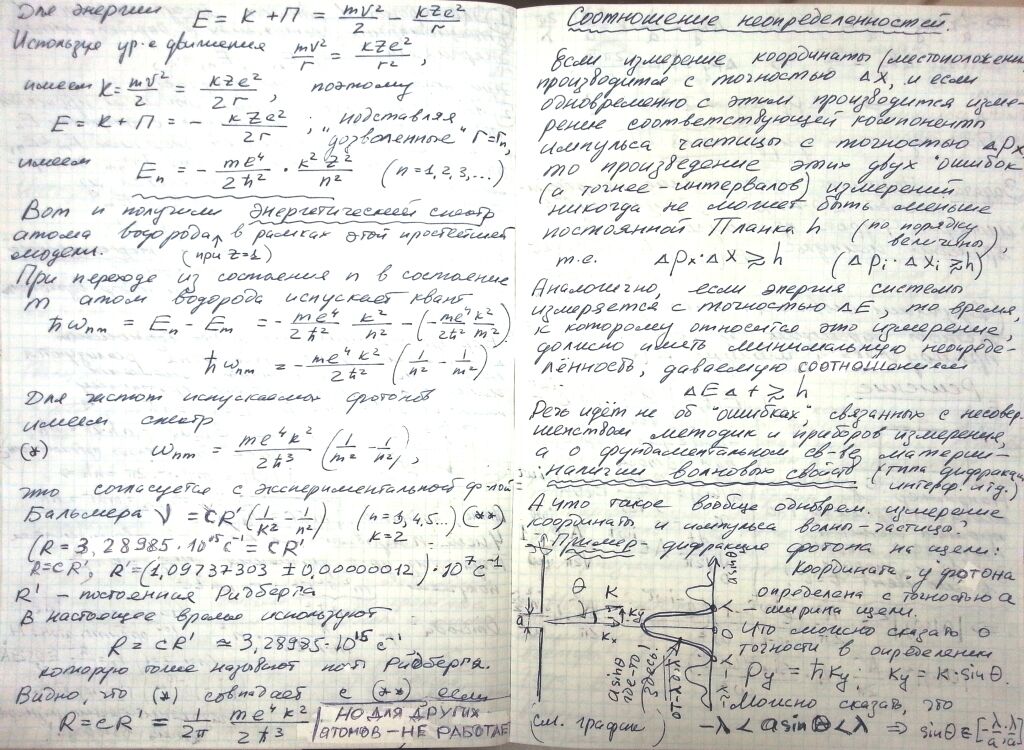 Для энергии E = K + П = mv²/2 − kZe²/r
Используя ур-е движения mv²/r = kZe²/r²,
имеем K = mv²/2 = kZe²/2r, поэтому
E = K + П = − kZe²/2r ; подставляя
"дозволенные" r = rn,
имеем En = − me⁴/2ħ² · k²Z²/n² (n = 1, 2, 3, ...)
Вот и получили энергетический спектр
атома водорода в рамках этой простейшей
модели. (при Z=1)
При переходе из состояния n в состояние
m атом водорода испускает квант
ħωnm = En − Em = − me⁴/2ħ² k²/n² − (− me⁴k²/2ħ²m²)
ħωnm = − me⁴k²/2ħ² (1/n² − 1/m²)
Для частот испускаемых фотонов
имеем спектр
(*) ωnm = me⁴k²/2ħ³ (1/m² − 1/n²),
это согласуется с экспериментальной ф-лой
Бальмера ν = cR'(1/k² − 1/n²) (n = 3, 4, 5...) (**)
k = 2
(R = 3,28985·10¹⁵ с⁻¹ = cR'
R = cR', R' = (1,09737303 ± 0,00000012)·10⁷ с⁻¹
R' - постоянная Ридберга
В настоящее время используют
R = cR' ≃ 3,28985·10¹⁵ с⁻¹
которую тоже называют пост. Ридберга.
Видно, что (*) совпадает с (**) если
R = cR' = 1/2π me⁴k²/2ħ³
НО ДЛЯ ДРУГИХ
АТОМОВ - НЕ РАБОТАЕТ
Соотношение неопределенностей.
Если измерение координаты (местоположения)
производится с точностью Δx, и если
одновременно с этим производится изме-
рение соответствующей компоненты
импульса частицы с точностью Δpx
то произведение этих двух "ошибок"
(а точнее - интервалов) измерений
никогда не может быть меньше
постоянной Планка h (по порядку
величины),
т.е. Δpx·Δx ≳ h (Δpi·Δxi ≳ h)
Аналогично, если энергия системы
измеряется с точностью ΔE, то время,
к которому относится это измерение,
должно иметь минимальную неопреде-
лённость, даваемую соотношением
ΔEΔt ≳ h
Речь идёт не об "ошибках", связанных с несовер-
шенством методик и приборов измерения,
а о фундаментальном св-ве материи -
наличии волновых свойств (типа дифракции
интерф. и т.д.)
А что такое вообще одноврем. измерение
координаты и импульса волны-частицы?
Пример - дифракция фотона на щели:
Координата y фотона
определена с точностью a
- ширина щели.
Что можно сказать о
точности в определении
py = ħky, ky = k·sinθ.
Можно сказать, что
−λ < a sinθ < λ ⇒ sinθ ∈ [−λ/a, λ/a]
a
θ
K
ky
kx
a sinθ
λ
0
−λ
a sinθ
где-то
здесь!
от −λ до λ
(см. график)